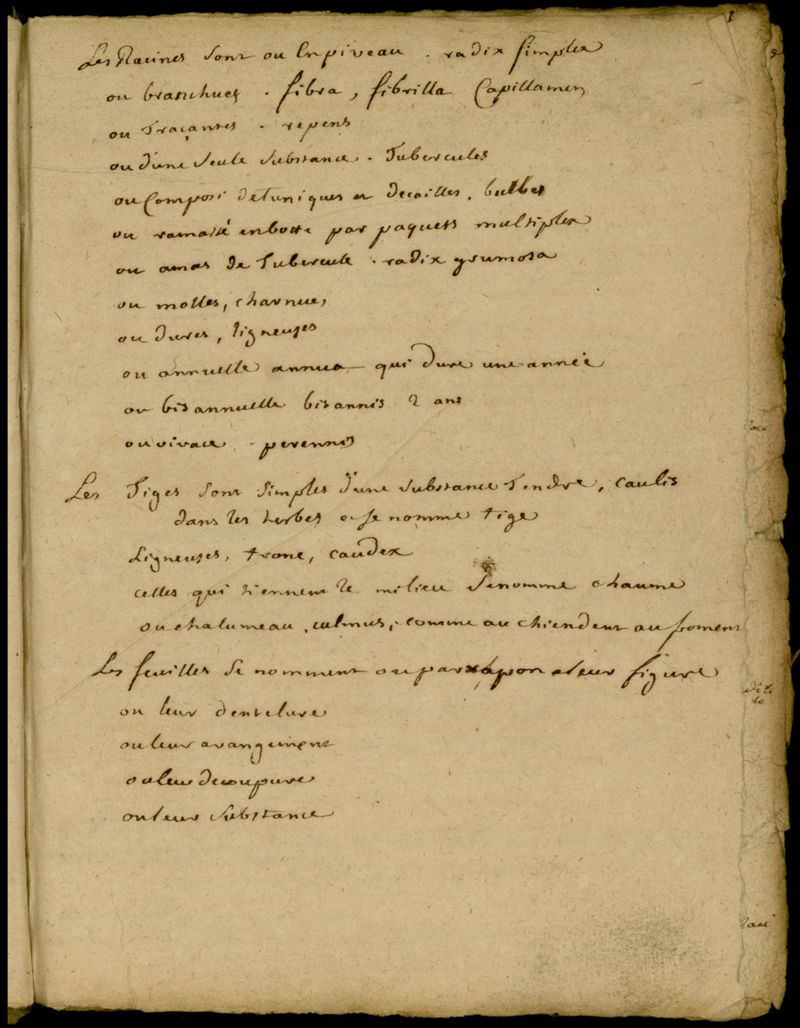 Les Racines sont ou en piveau . radix simplex
ou branchues . fibra, fibrilla Capillamen
ou Traçantes . repens
ou d'une seule substance . Tubercules
ou Composé de Tuniques et decailles, bulbes
ou ramassé en botte par paquets multiplex
ou amas de Tubercule . radix grumosa
ou molles, charnue,
ou dures, ligneuses
ou annuelle annua qui dure une année
ou bisannuelle bisannis 2 ans
ou vivace . perennis
Les Tiges sont simples d'une substance Tendre, caulis
dans les herbes et se nomme tige
Ligneuses, tronc, caudex
celles qui tiennent le milieu se nomme chaume
ou chalumeau, culmus, comme au chiendent au froment
Les feuilles se nomment ou par rapon a leur figure
ou leur dentelure
ou leur arangement
ou leur decoupure
ou leur substance